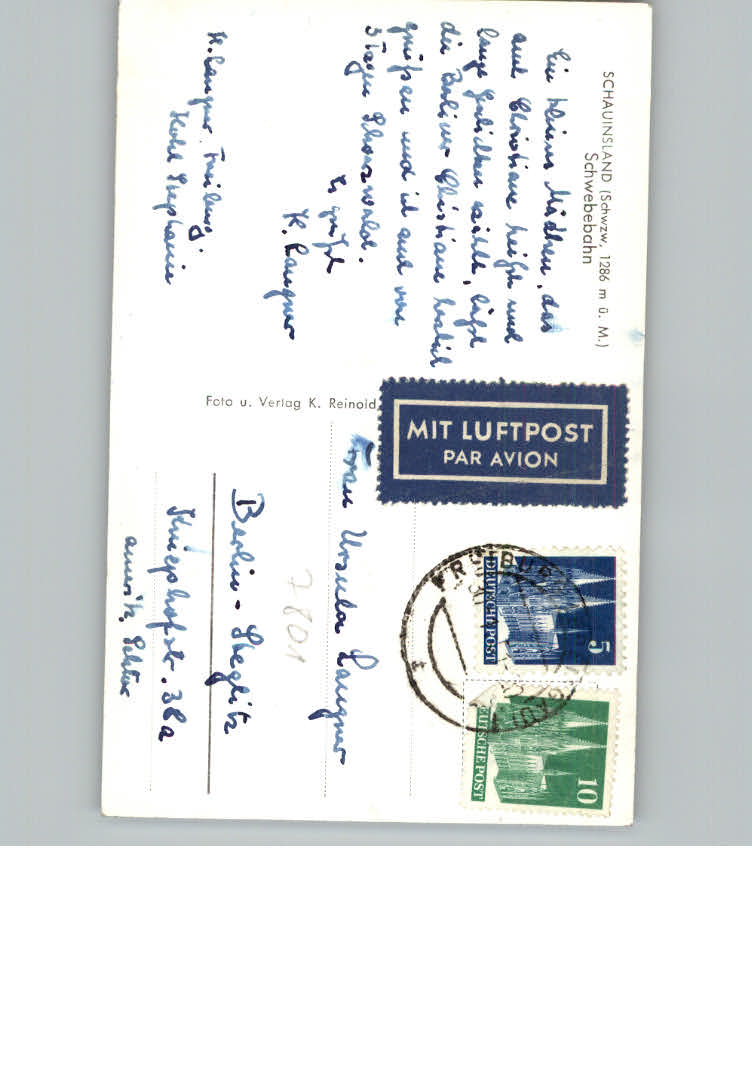 SCHAUINSLAND (Schwzw, 1286 m ü. M.)
Schwebebahn
Ein kleines Mädchen, das
auch Christiane heißt und
lange Geschichten erzählt, läßt
die Berliner Christiane herzlich
grüßen und ich auch von
3 Tagen Schwarzwald.
Es grüßt
K. Langner
K. Langner, Freiburg
Hotel Stephanie
Foto u. Verlag K. Reinold,
MIT LUFTPOST
PAR AVION
5
DEUTSCHE POST
10
DEUTSCHE POST
FREIBURG
Frau Ursula Langner
7801
Berlin-Steglitz
Kniephofstr. 38a
amerik. Sektor